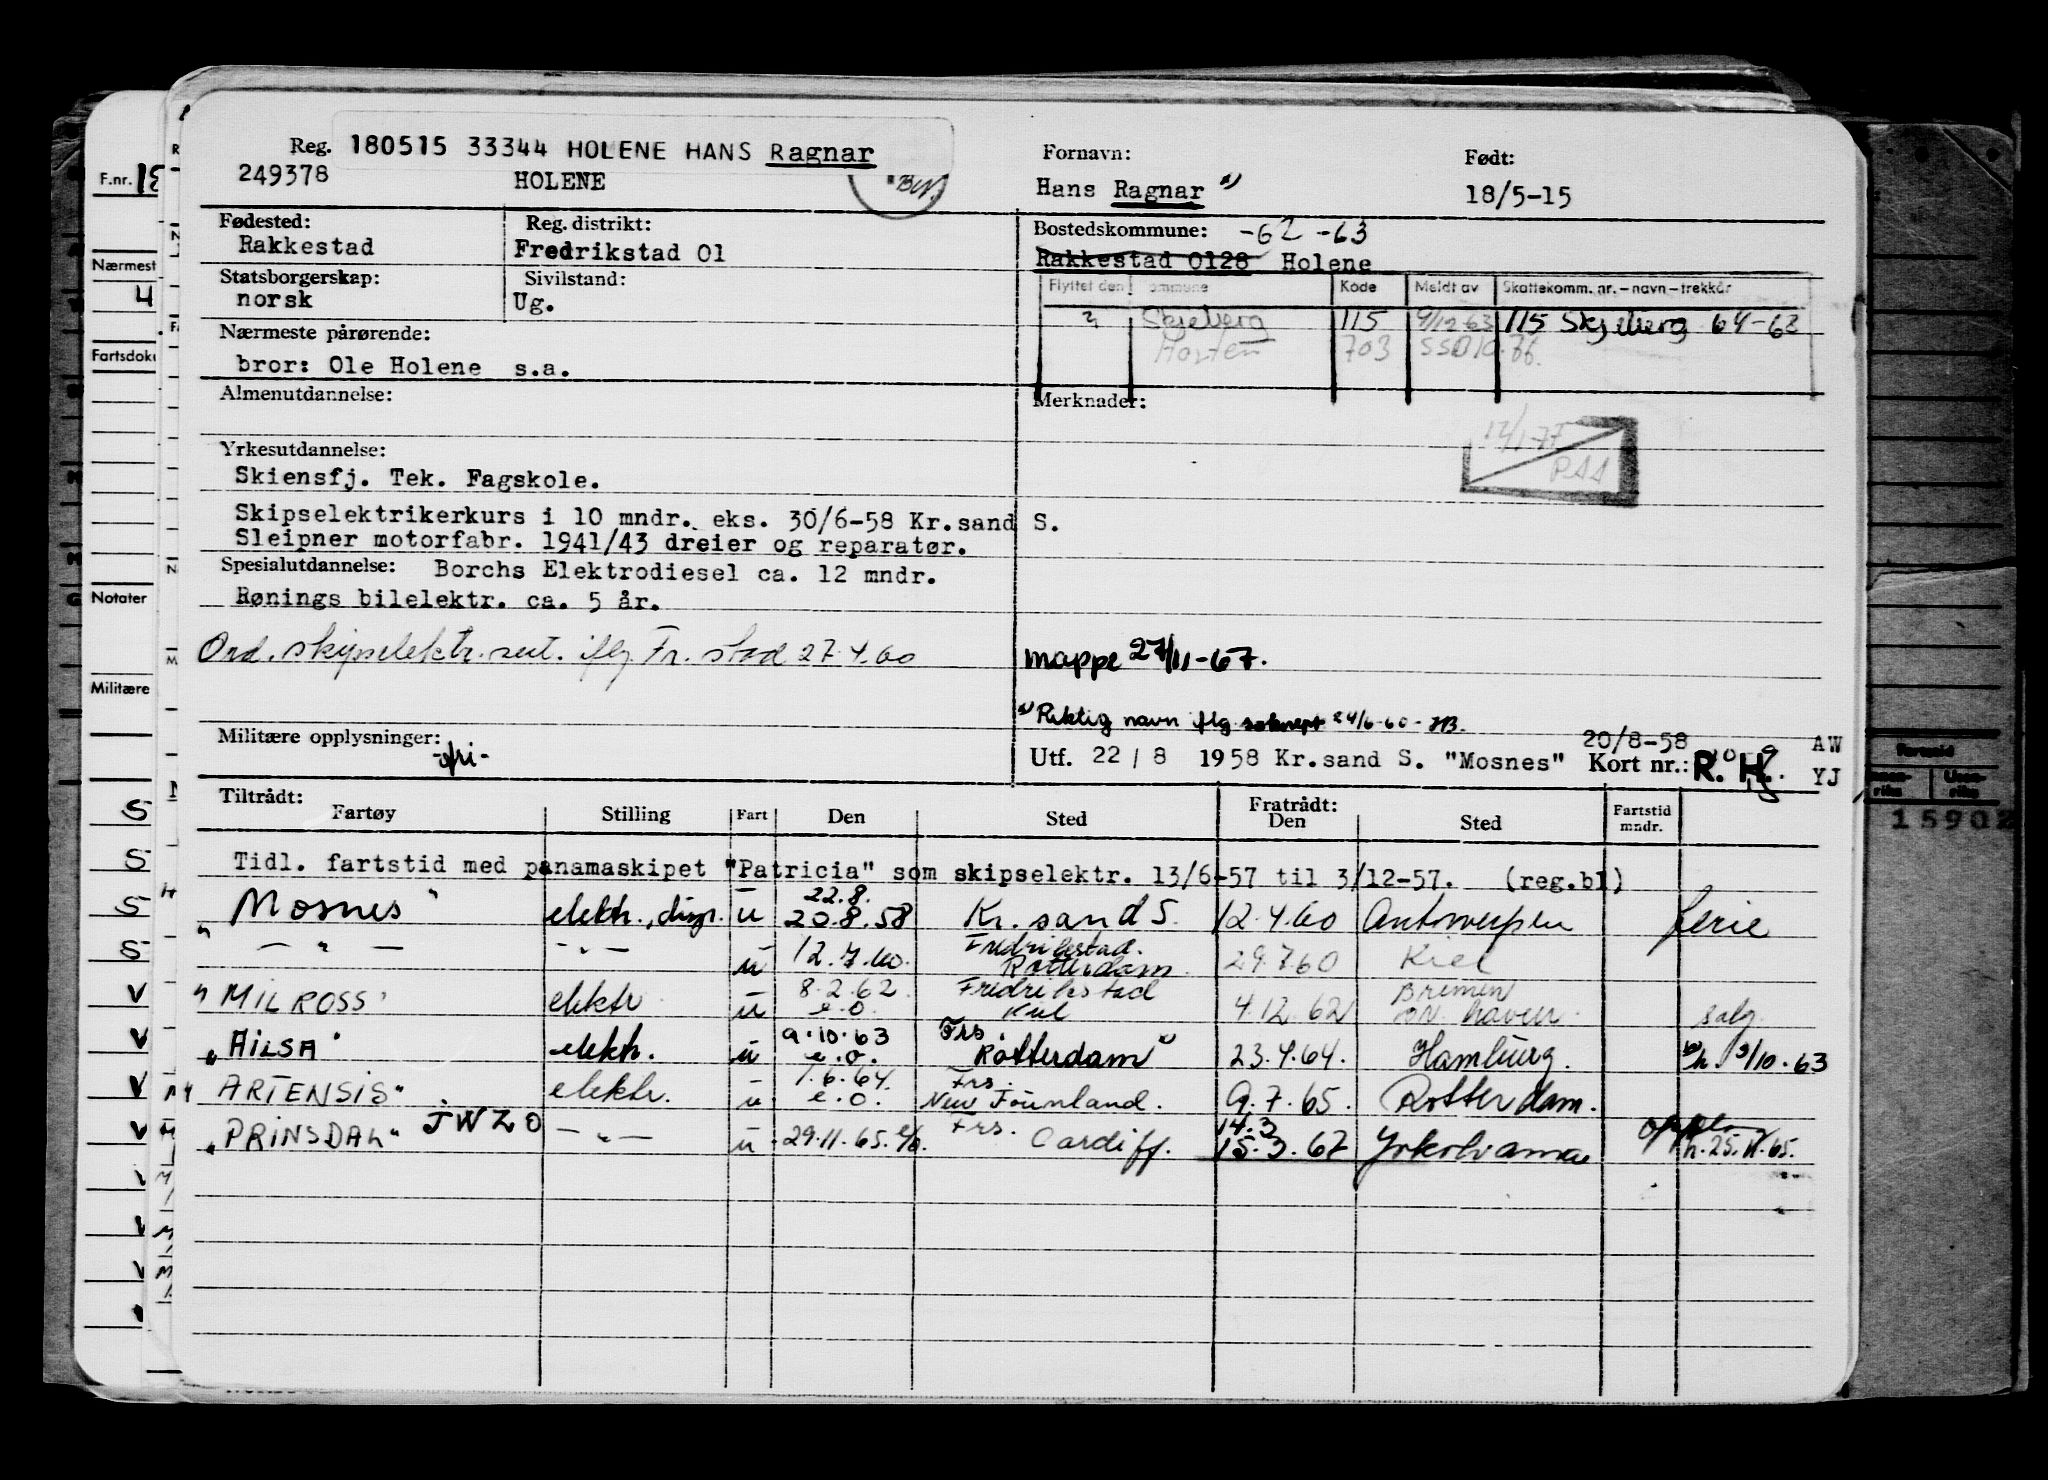 Reg. 180515 33344 HOLENE HANS Ragnar
249378 HOLENE
Fornavn: Født:
Hans Ragnar x) 18/5-15
Fødested: Reg. distrikt:
Rakkestad Fredrikstad 01
Statsborgerskap: Sivilstand:
norsk Ug.
Nærmeste pårørende:
bror: Ole Holene s.a.
Bostedskommune: -62 -63
Rakkestad 0128 Holene
Flyttet den ommune Kode Meldt av Skattekomm. nr. – navn – trekkår
Skjeberg 115 9/12 63 115 Skjeberg 64-63
Horten 703 SSB 10.66.
Almenutdannelse:
Merknader:
12/1-77
Yrkesutdannelse:
Skiensfj. Tek. Fagskole.
Skipselektrikerkurs i 10 mndr. eks. 30/6-58 Kr.sand S.
Sleipner motorfabr. 1941/43 dreier og reparatør.
Spesialutdannelse: Borchs Elektrodiesel ca. 12 mndr.
Rønings bilelektr. ca. 5 år.
Ord. skipselektr. sert. iflg Fr. stad 27.4.60
mappe 27/11-67.
x) Riktig navn iflg 24/6-60-
Militære opplysninger:
-fri-
Utf. 22 / 8 1958 Kr.sand S. "Mosnes" 20/8-58 Kort nr.: R. H. AW
YJ
Tiltrådt: Fratrådt:
Fartøy Stilling Fart Den Sted Den Sted Fartstid mndr.
Tidl. fartstid med panamaskipet "Patricia" som skipselektr. 13/6-57 til 3/12-57. (reg.bl)
22.8.
"Mosnes" elektr., u 20.8.58 Kr. sand S. 12.4.60 Antwerpen ferie
— " — — " — u 12.7.60. Fredrikstad. Rotterdam 29.7.60 Kiel
"MILROSS" elektr u 8.2.62 e.o. Fredrikstad Kiel 4.12.62 Bremen haven salg
"AILSA" elektr. u 9.10.63 e.o. Frs Rotterdam 23.4.64. Hamburg. h. 9/10.63
"ARTENSIS" elektr. u 1.6.64. e.o. Frs. New Founland. 9.7.65. Rotterdam.
"PRINSDAL" JWZO — " — u 29.11.65. Frs. Cardiff. 14.3 15.3.67 Yokohama h. 25.11.65.
F.nr.
Nærmest
4
Fartsdoku
Notater
Militære
S
S
S
S
V
V
V
V
15902